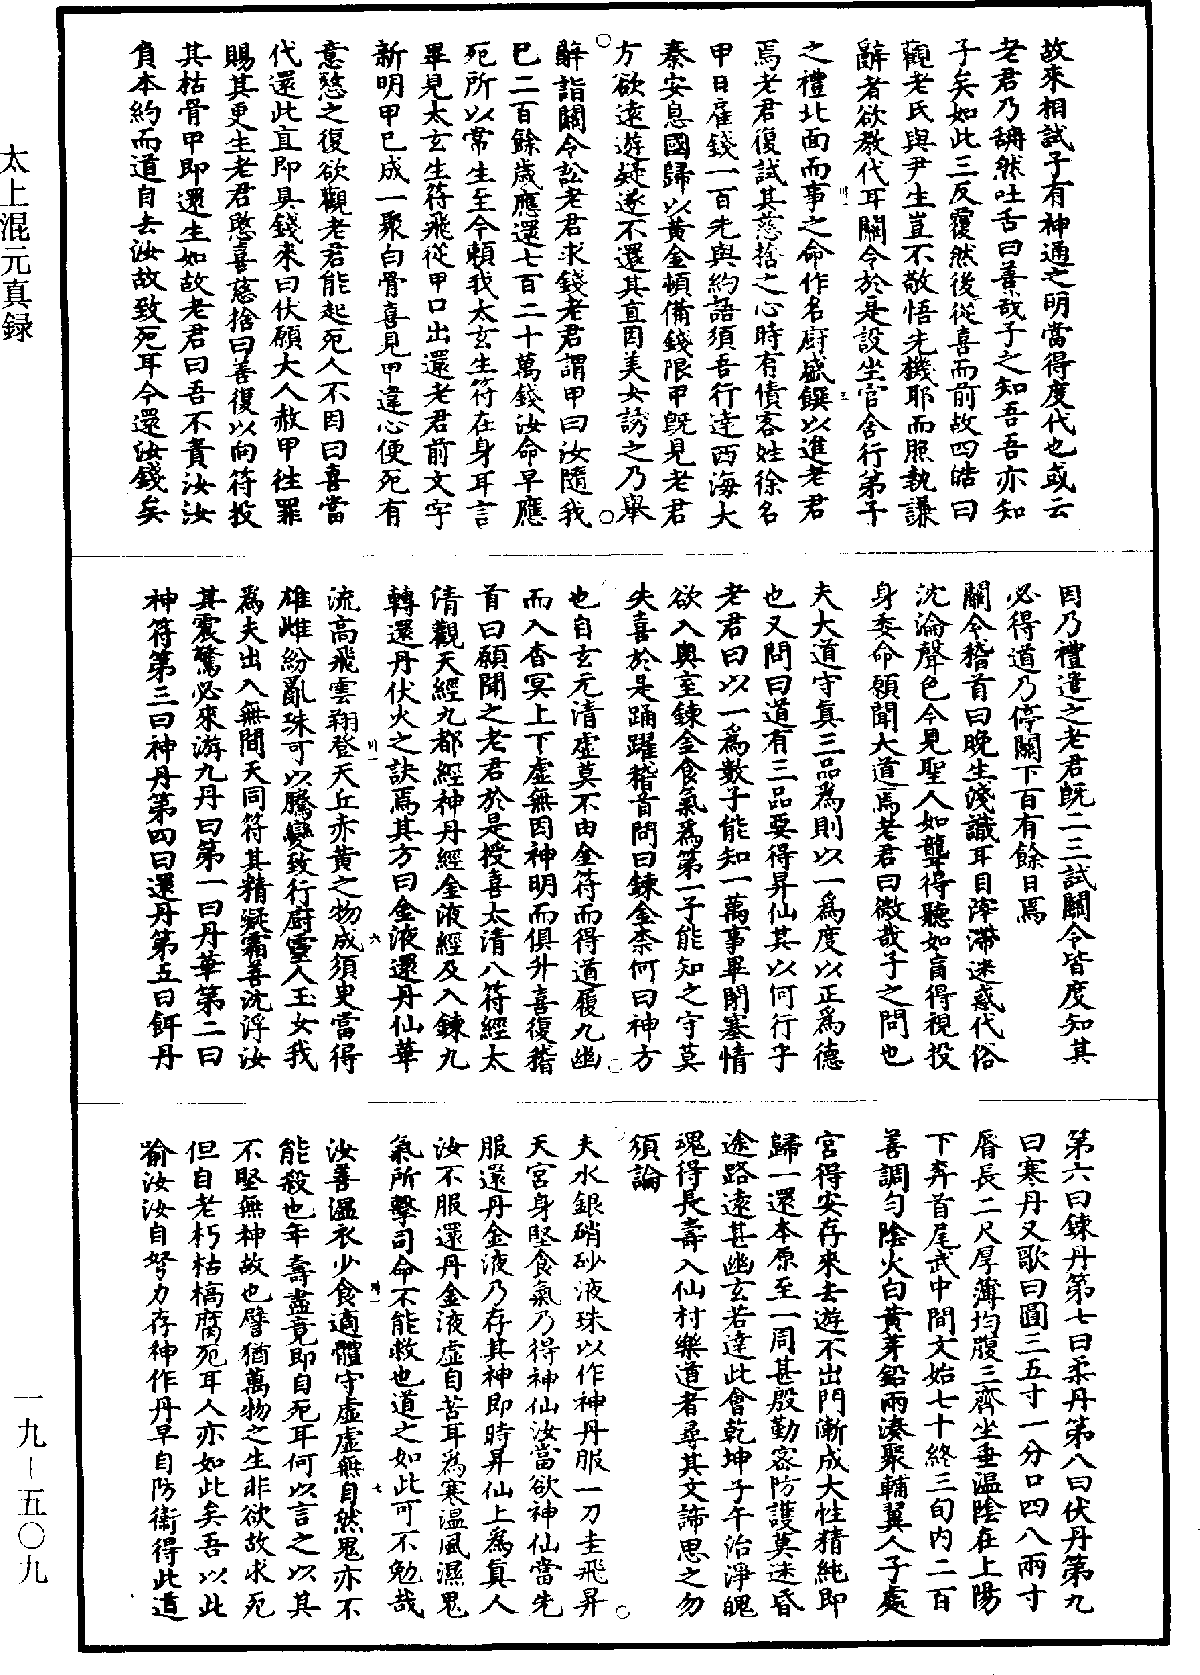 太上混元真録
故來相試子有神通之明當得度代也或云
老君乃聃然吐舌曰善哉子之知吾吾亦知
子矣如此三反覆然後從喜而前故四皓曰
觀老氏與尹生豈不敬悟先機耶而照執謙
辭者欲教代耳關令於是設坐官舍行弟子
之禮北面而事之命作名厨盛饌以進老君
焉老君復試其慈捨之心時有債客姓徐名
甲日雇錢一百先與約語須吾行達西海大
秦安息國歸以黃金頓備錢限甲既見老君
方欲遠遊疑遂不還其直因美女誘之乃舉
辭詣關令訟老君求錢老君謂甲曰汝隨我
已二百餘歲應還七百二十萬錢汝命早應
死所以常生至今賴我太玄生符在身耳言
畢見太玄生符飛從甲口出還老君前文字
新明甲已成一聚白骨喜見甲違心便死有
意愍之復欲觀老君能起死人不因曰喜當
代還此直即具錢來曰伏願大人赦甲往罪
賜其更生老君愍喜慈捨曰善復以向符投
其枯骨甲即還生如故老君曰吾不責汝汝
負本約而道自去汝故致死耳今還汝錢矣
因乃禮遣之老君既二三試關令皆度知其
必得道乃停關下百有餘日焉
關令稽首曰晚生淺識耳目滓滯迷惑代俗
沈淪聲色今見聖人如聾得聽如盲得視投
身委命願聞大道焉老君曰微哉子之問也
夫大道守真三品為則以一為度以正為德
也又問曰道有三品要得昇仙其以何行乎
老君曰以一為數子能知一萬事畢閉塞情
欲入奥室鍊金食氣為第一子能知之守莫
失喜於是踊躍稽首問曰鍊金柰何曰神方
也自玄元清虛莫不由金符而得道履九幽
而入杳冥上下虛無因神明而俱升喜復稽
首曰願聞之老君於是授喜太清八符經太
清觀天經九都經神丹經金液經及入鍊九
轉還丹伏火之訣焉其方曰金液還丹仙華
流高飛雲翔登天丘赤黃之物成須臾當得
雄雌紛亂珠可以騰變致行厨靈人玉女我
為夫出入無間天同符其精凝霜善沈浮汝
其震驚必來游九丹曰第一曰丹華第二曰
神符第三曰神丹第四曰還丹第五曰餌丹
第六曰鍊丹第七曰柔丹第八曰伏丹第九
曰寒丹又歌曰圓三五寸一分口四八兩寸
脣長二尺厚薄均腹三齊坐垂温陰在上陽
下奔首尾武中間文始七十終三旬内二百
善調勻陰火白黃芽鉛兩湊聚輔翼人子處
宮得安存來去遊不出門漸成大性精純即
歸一還本原至一周甚殷勤密防護莫迷昏
途路遠甚幽玄若達此會乾坤子午治淨魄
魂得長壽入仙村樂道者尋其文諦思之勿
須論
夫水銀硝砂液珠以作神丹服一刀圭飛昇
天宮身堅食氣乃得神仙汝當欲神仙當先
服還丹金液乃存其神即時昇仙上為真人
汝不服還丹金液虛自苦耳為寒温風濕鬼
氣所擊司命不能救也道之如此可不勉哉
汝善温衣少食適體守虛虛無自然鬼亦不
能殺也年壽盡竟即自死耳何以言之以其
不堅無神故也譬猶萬物之生非欲故求死
但自老朽枯槁腐死耳人亦如此矣吾以此
喻汝汝自努力存神作丹早自防衞得此道
一九－五〇九